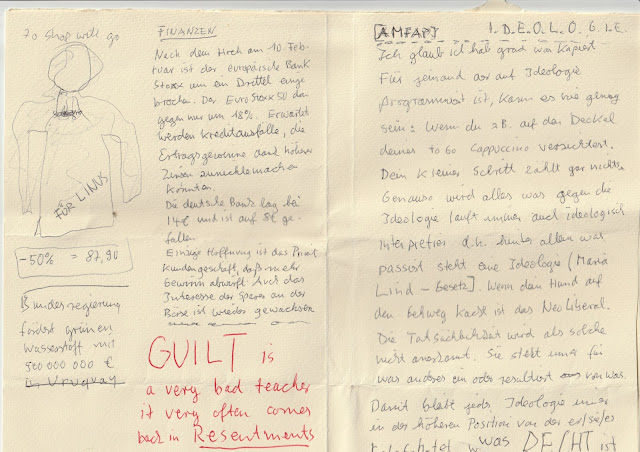 To Shop will go
FÜR LINUS
-50% = 87,90
Bundesregierung
fördert grünen
Wasserstoff mit
500 000 000 €
in Uruguay
FINANZEN
Nach dem Hoch am 10. Feb-
ruar ist der europäische Bank
Stoxx um ein Drittel einge
brochen. Der EuroStoxx 50 da
gegen nur um 18%. Erwartet
werden Kreditausfälle, die
Ertragsgewinne dank höherer
Zinsen zunichtemachen
könnten.
Die deutsche Bank lag bei
14€ und ist auf 8€ ge-
fallen.
Einzige Hoffnung ist das Privat
kundengeschäft, daß mehr
Gewinn abwirft. Auch das
Interesse der Sparer an der
Börse ist wieder gewachsen
GUILT is
a very bad teacher
it very often comes
back in Resentments
[AMFAP] I.D.E.O.L.O.G.I.E.
Ich glaub ich hab grad was kapiert
Für jemand der auf Ideologie
programmiert ist, kann es nie genug
sein: Wenn du zB. auf den Deckel
deines to Go Cappuccino verzichtest.
Dein kleiner Schritt zählt gar nichts.
Genauso wird alles was gegen die
Ideologie läuft immer auch ideologisch
interpretiert d.h. hinter allem was
passiert steht eine Ideologie (Maria
Lind - Gesetz]. Wenn dein Hund auf
den Gehweg kackt ist das Neoliberal.
Die Tatsächlichkeit wird als solche
nicht anerkannt. Sie steht immer für
was anderes ein oder resultiert von was.
Damit bleibt jede Ideologie immer
in der höheren Position von der er/sie/es
was DE/HT ist